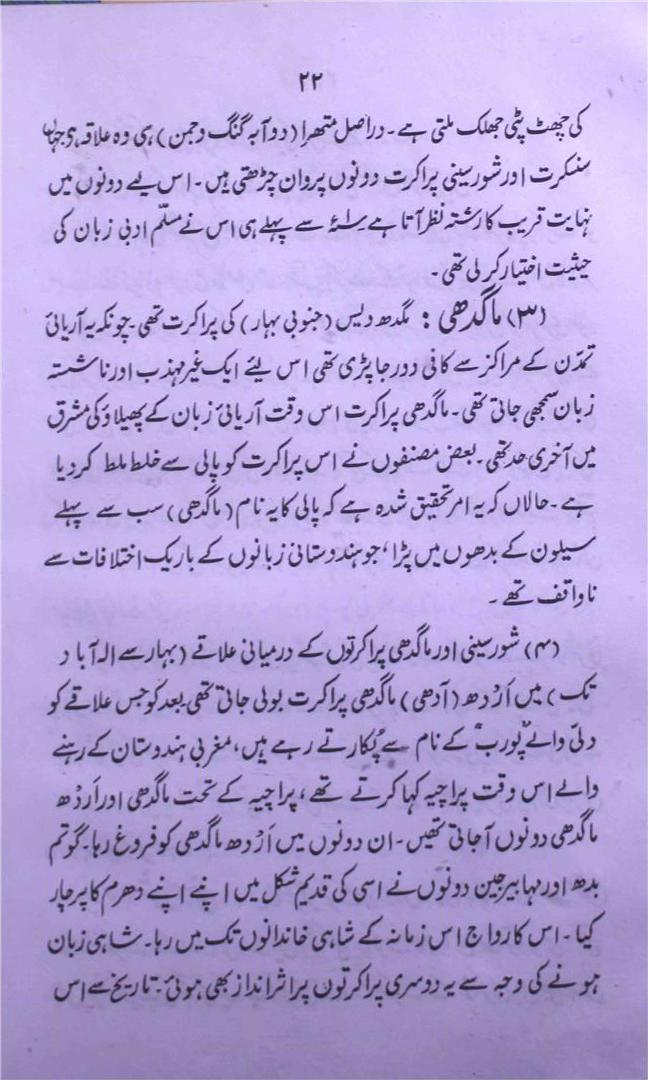 ۲۲
کی چھٹ پٹی جھلک ملتی ہے۔ دراصل متھرا (دوآبہ گنگ و جمن) ہی وہ علاقہ ہی جہاں
سنسکرت اور شورسینی پراکرت دونوں پروان چڑھتی ہیں۔ اس لیے دونوں میں
نہایت قریب کا رشتہ نظر آتا ہے سے پہلے ہی اس نے مسلّم ادبی زبان کی
حیثیت اختیار کر لی تھی۔
(۳) ماگدھی : مگدھ دیس (جنوبی بہار) کی پراکرت تھی۔ چونکہ یہ آریائی
تمدّن کے مراکز سے کافی دور جا پڑی تھی اس لیئے ایک غیر مہذب اور ناشستہ
زبان سمجھی جاتی تھی۔ ماگدھی پراکرت اس وقت آریائی زبان کے پھیلاؤ کی مشرق
میں آخری حد تھی۔ بعض مصنفوں نے اس پراکرت کو پالی سے خلط ملط کر دیا
ہے۔ حالاں کہ یہ امر تحقیق شدہ ہے کہ پالی کا یہ نام (ماگدھی) سب سے پہلے
سیلون کے بدھوں میں پڑا، جو ہندوستانی زبانوں کے باریک اختلافات سے
ناواقف تھے۔
(۴) شورسینی اور ماگدھی پراکرتوں کے درمیانی علاقے (بہار سے الہ آباد
تک) میں اَرْدھ (آدھی) ماگدھی پراکرت بولی جاتی تھی بعد کو جس علاقے کو
دلّی والے "پورب" کے نام سے پُکارتے رہے ہیں، مغربی ہندوستان کے رہنے
والے اس وقت پراچیہ کہا کرتے تھے، پراچیہ کے تحت ماگدھی اور اَرْدھ
ماگدھی دونوں آجاتی تھیں۔ ان دونوں میں اَرْدھ ماگدھی کو فروغ رہا۔ گوتم
بدھ اور مہابیر جین دونوں نے اسی کی قدیم شکل میں اپنے اپنے دھرم کا پرچار
کیا۔ اس کا رواج اس زمانہ کے شاہی خاندانوں تک میں رہا۔ شاہی زبان
ہونے کی وجہ سے یہ دوسری پراکرتوں پر اثر انداز بھی ہوئی۔ تاریخ سے اس